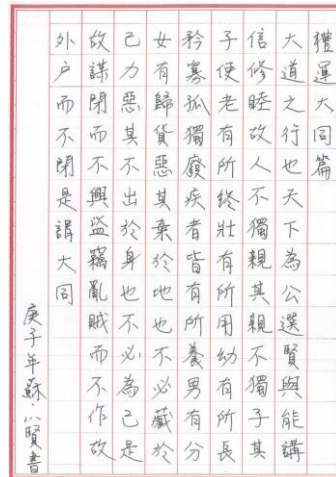 禮運大同篇
大道之行也天下為公選賢與能講
信修睦故人不獨親其親不獨子其
子使老有所終壯有所用幼有所長
矜寡孤獨廢疾者皆有所養男有分
女有歸貨惡其棄於地也不必藏於
己力惡其不出於身也不必為己是
故謀閉而不興盜竊亂賊而不作故
外戶而不閉是謂大同
庚子年蘇八賢書